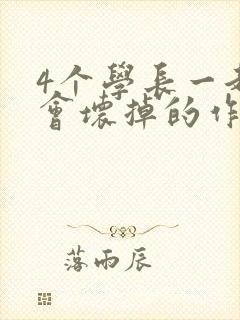 4个學長一
會壞掉的作
落雨辰